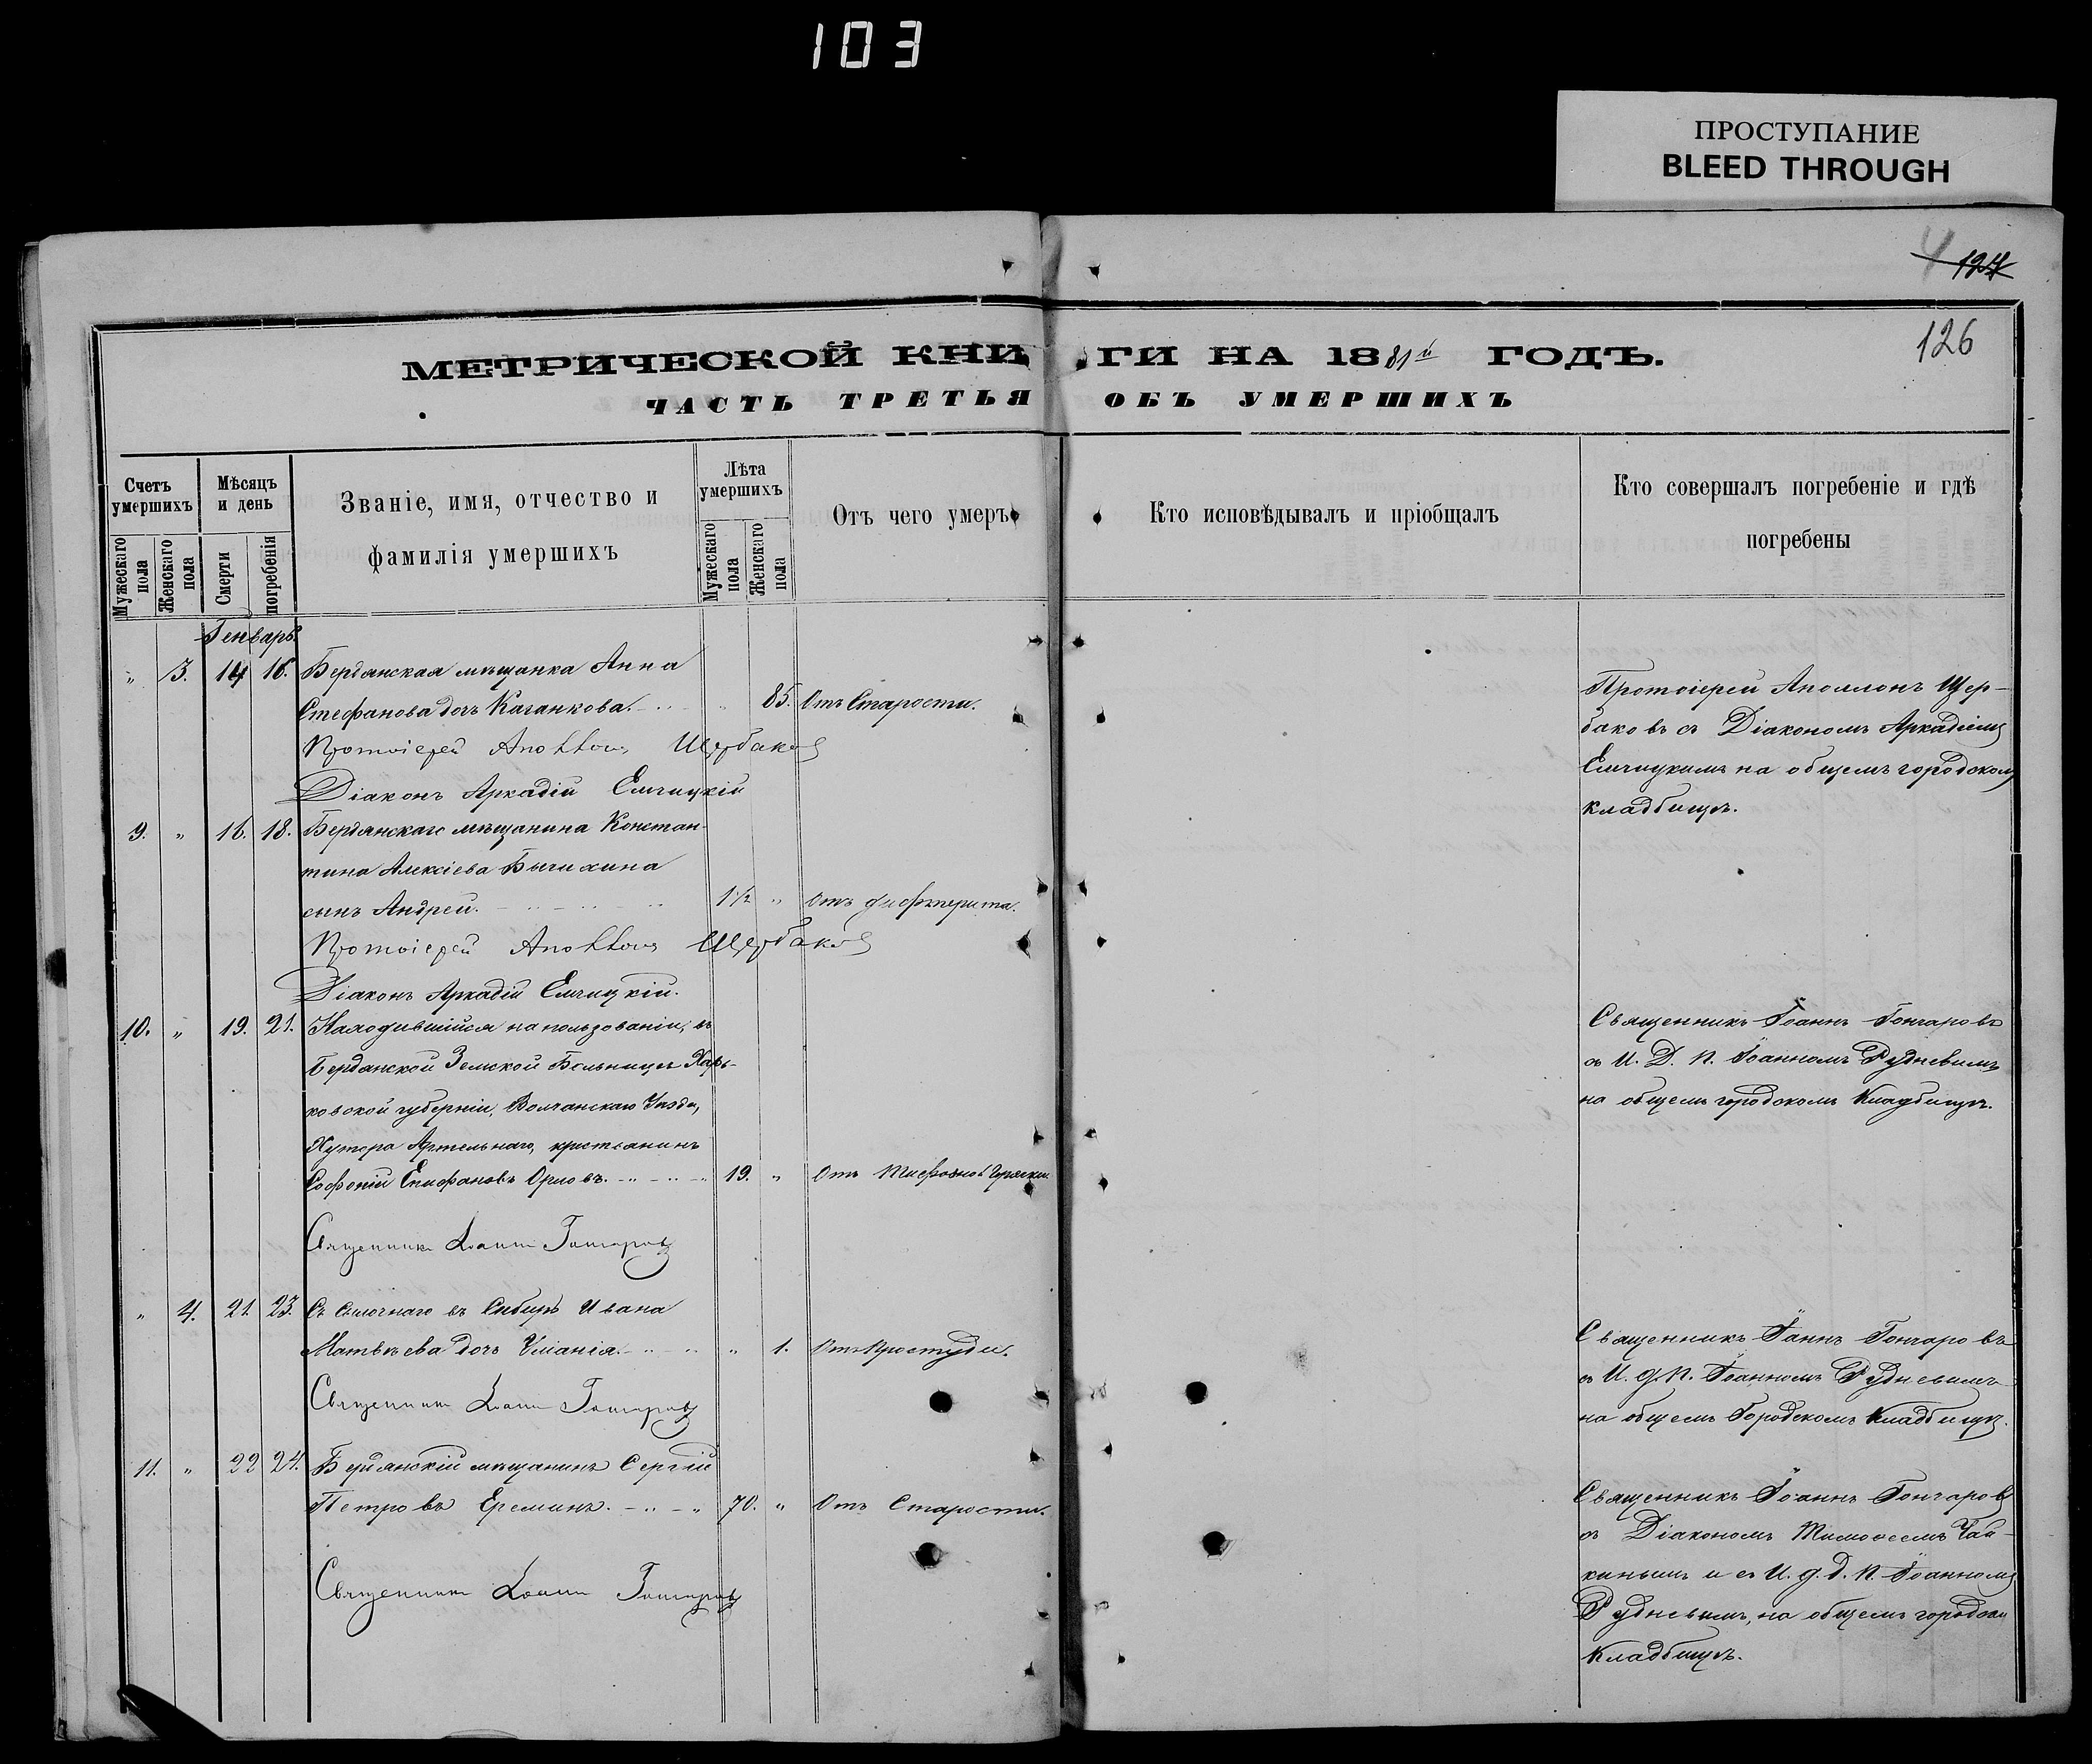 103
ПРОСТУПАНИЕ
BLEED THROUGH
4 127
126
МЕТРИЧЕСКОЙ КНИГИ НА 1881й ГОДЪ.
ЧАСТЬ ТРЕТЬЯ ОБЪ УМЕРШИХЪ
Счетъ умершихъ
Мужескаго пола
Женскаго пола
Мѣсяцъ и день
Смерти
погребенія
Званіе, имя, отчество и
фамилія умершихъ
Лѣта умершихъ
Мужескаго пола
Женскаго пола
Отъ чего умеръ
Кто исповѣдывалъ и пріобщалъ
Кто совершалъ погребеніе и гдѣ
погребены
Генварь
" 3. 14 16. Бердянская мѣщанка Анна
Стефанова дочь Каганкова. " 85. Отъ Старости.
Протоіерей Аполлонъ Щербаковъ
Діаконъ Аркадій Емчицкій
Протоіерей Аполлонъ Щер-
баковъ съ Діакономъ Аркадіемъ
Емчицкимъ на общемъ городскомъ
кладбищѣ.
9. " 16. 18. Бердянскаго мѣщанина Констан-
тина Алексіева Бычихина
сынъ Андрей. 1 1/2 " Отъ дифтерита.
Протоіерей Аполлонъ Щербаковъ
Діаконъ Аркадій Емчицкій.
10. " 19. 21. Находившійся на пользованіи, въ
Бердянской Земской Больницѣ Харь-
ковской губерніи, Волчанскаго Уѣзда,
Хутора Артельнаго, крестьянинъ
Софоній Епифановъ Орловъ. 19. " Отъ Тифозной Горячки
Священникъ Іоаннъ Гончаровъ
Священникъ Іоаннъ Гончаровъ
съ И. Д. П. Іоанномъ Рудневымъ
на общемъ городскомъ Кладбищѣ.
" 4. 21. 23. Съ сылочнаго въ Сибирь Ивана
Матвѣева дочь Уліанія. " 1. Отъ Простуды.
Священникъ Іоаннъ Гончаровъ
Священникъ Іаннъ Гончаровъ
съ И. д. П. Іоанномъ Рудневымъ
на общемъ Городскомъ Кладбищѣ.
11. " 22 24. Бердянскій мѣщанинъ Сергій
Петровъ Ереминъ. 70. " Отъ Старости.
Священникъ Іоаннъ Гончаровъ
Священникъ Іоаннъ Гончаровъ
съ Діакономъ Тимоѳеемъ Чай-
кинымъ и съ И. д. д. П. Іоанномъ
Рудневымъ, на общемъ городском
Кладбищѣ.